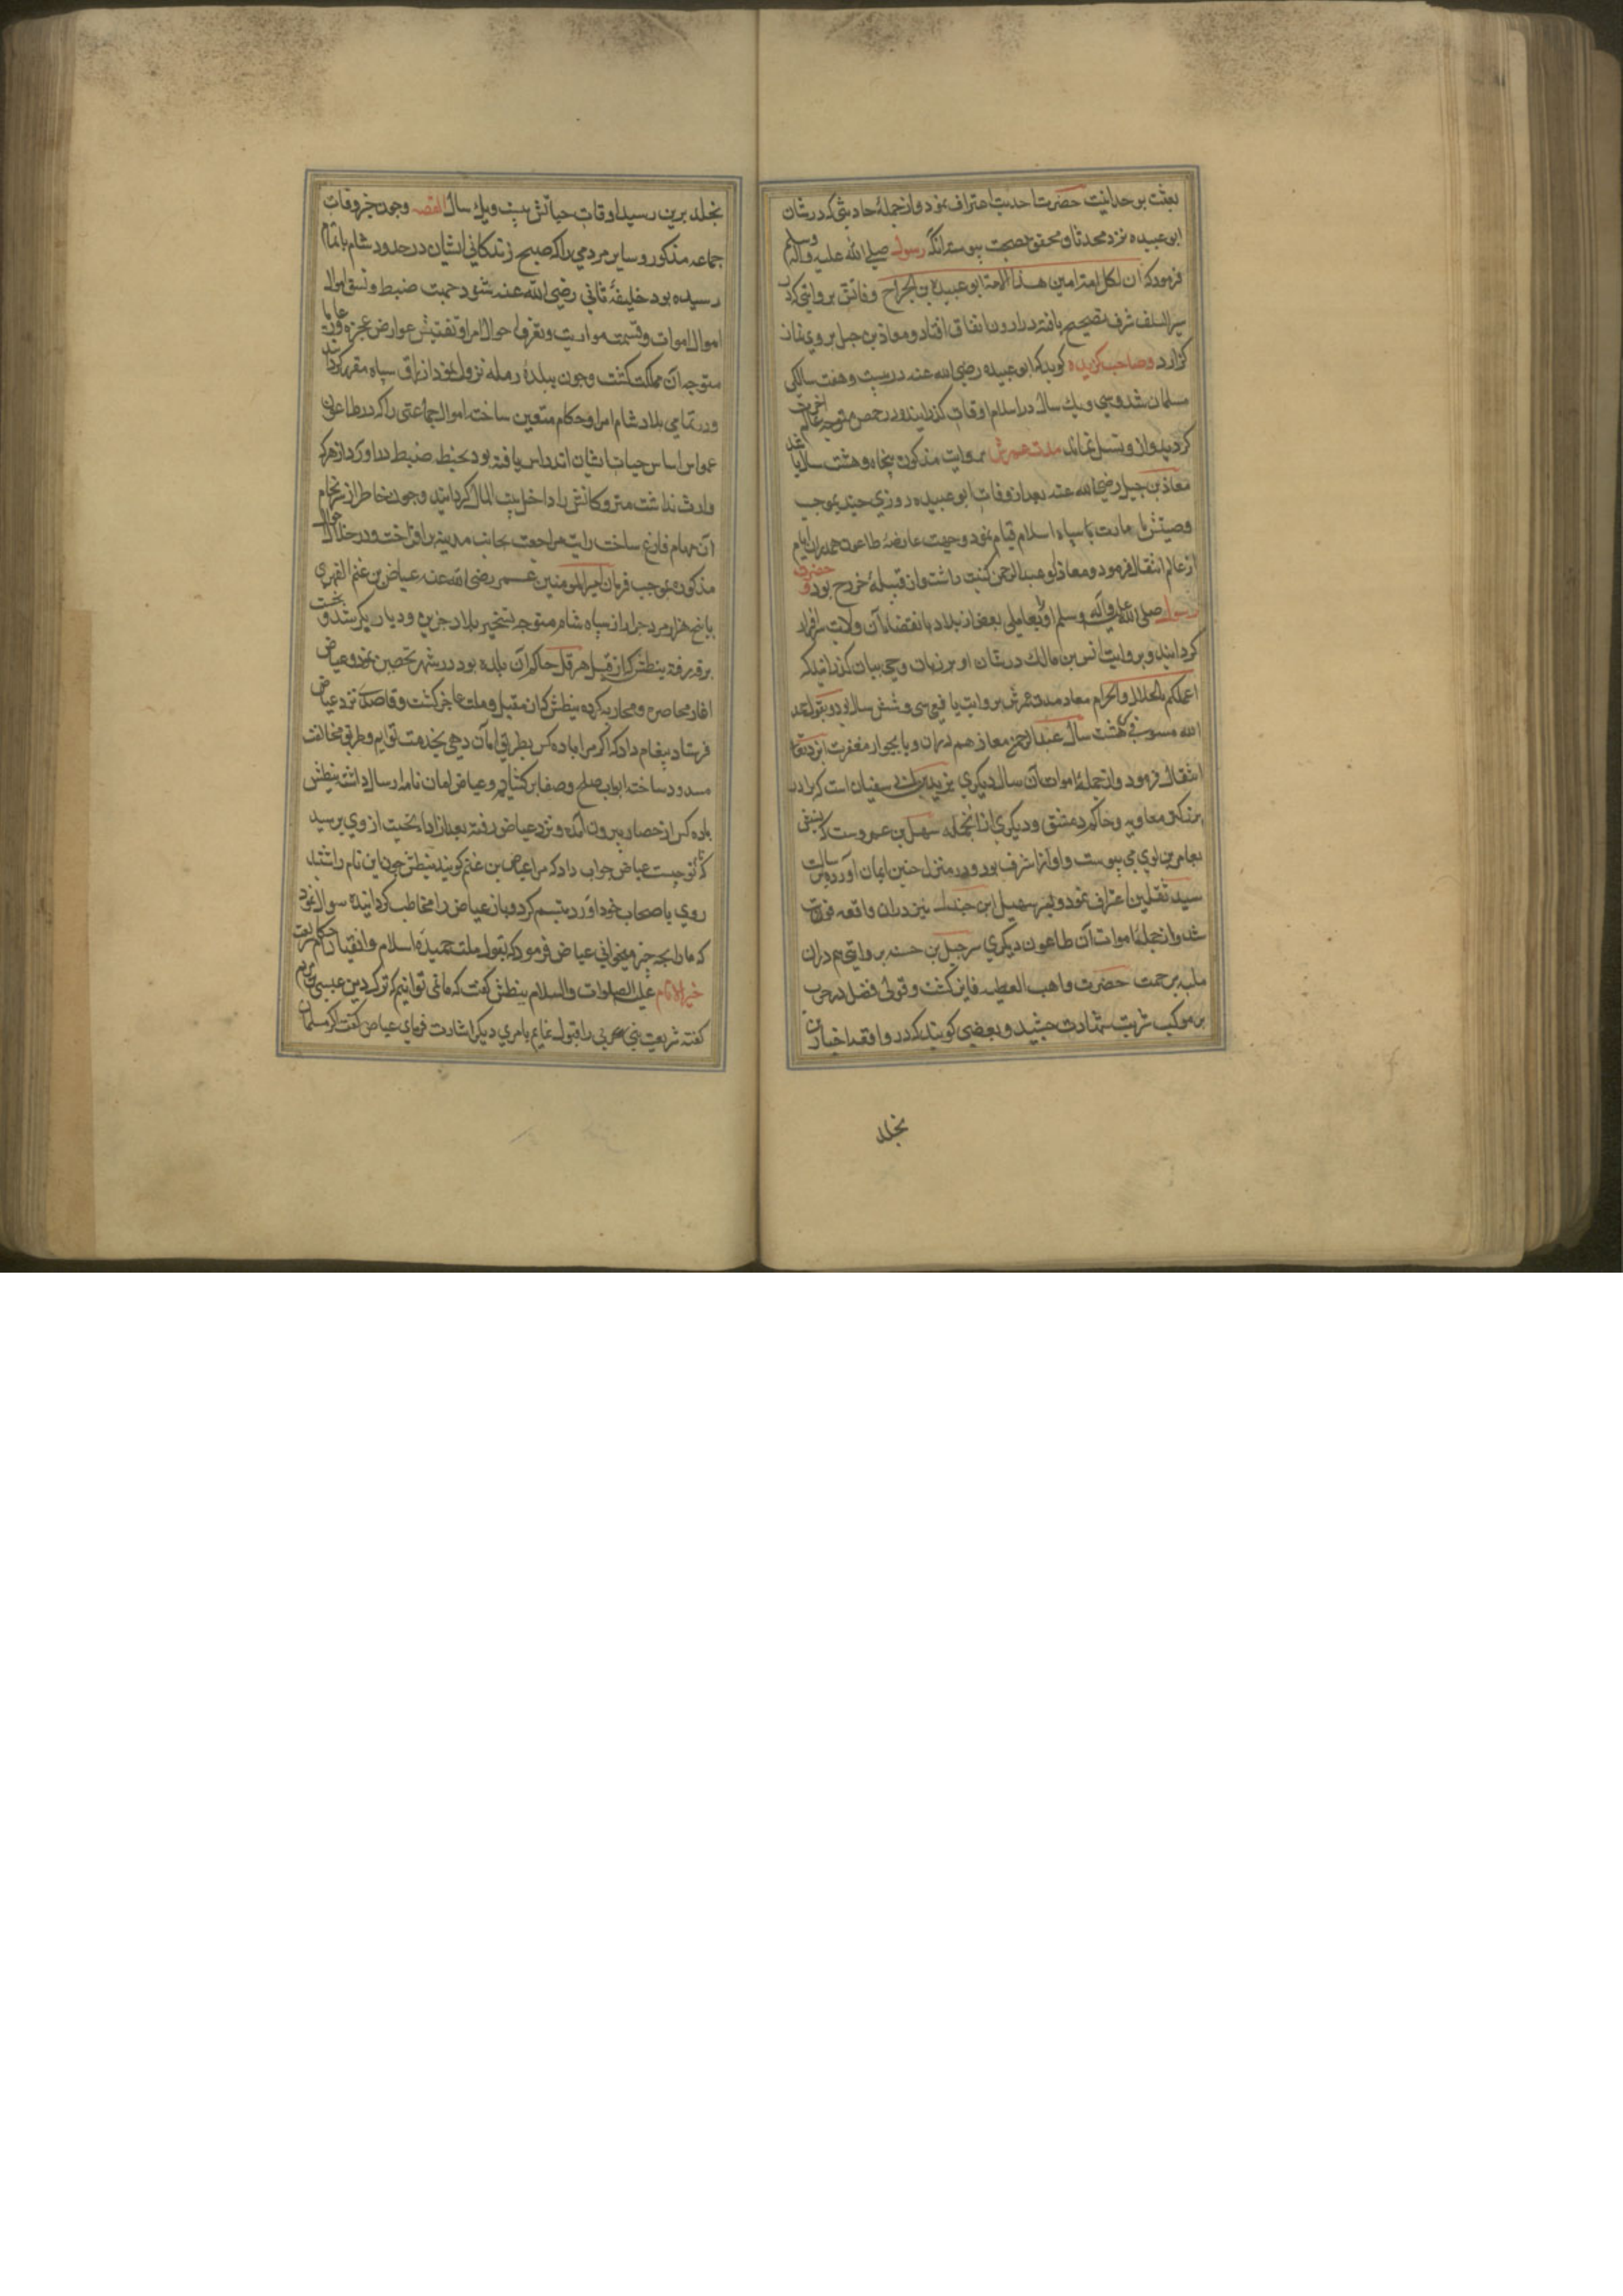 بعثت بر وحدانیت حضرت احدیت اعتراف نمود و از جملهٔ احادیثی که در شان
ابو عبیده نزد محدثان محقق بصحت پیوسته آنکه رسول صلی الله علیه و آله وسلم
فرمود که ان لکل امة امین هذا الامة ابو عبیدة بن الجراح و فاتش بروایتی که در
سیر السلف شرف تصحیح یافته در اردن اتفاق افتاد و معاذ بن جبل بر وی نماز
گزارد و صاحب گزیده گوید که ابو عبیده رضی الله عنه در بیست و هفت سالگی
مسلمان شد و سی و یک سال در اسلام اوقات گذرانید و در حمص متوجه عالم آخرت
گردید و از و نسل نماند مدت عمرش بروایت مذکور پنجاه و هشت سال باشد
معاذ بن جبل رضی الله عنه بعد از وفات ابو عبیده روزی چند بموجب
وصیتش بامارت سپاه اسلام قیام نمود و جهت عارضهٔ طاعون هم در آن ایام
از عالم انتقال فرمود و معاذ ابو عبد الرحمن کنیت داشت و از قبیلهٔ خزرج بود و حضرت
رسول صلی الله علیه و آله وسلم او را بعاملی بعضی از بلاد با نقضاء آن ولایت سرافراز
گردانید و بروایت انس بن مالک در شان او بر زبان وحی بیان گذرانید که
اعلمکم بالحلال والحرام معاذ مدت عمرش بروایت یافعی سی و شش سال بود و بقول عبد
الله مسور سی و هشت سال عبد الرحمن معاذ هم در آن وبا بجوار مغفرت ایزد تعالی
انتقال فرمود و از جملهٔ اموات آن سال دیگری یزید بن ابی سفیان است که برادر
بزرگتر معاویه و حاکم دمشق و دیگری از آنجمله سهیل بن عمروست که نسبش
بعامر بن لوی می پیوست و او از اشراف بود و در منزل حنین ایمان آورده برسالت
سید ثقلین اعتراف نمود و پسر سهیل ابن جندل نیز در آن واقعه فوت
شد و از جملهٔ اموات آن طاعون دیگری شرجیل بن حسنه بروایتی هم در آن
بلیه برحمت حضرت واهب العطیه فایز گشت و قولی فضل در حرب
یرموک شربت شهادت چشید و بعضی گویند که در واقعه اجنادین
بخلد
بخلد برین رسید اوقات حیاتش بیست و یک سال القصه و چون خبر وفات
جماعه مذکور و سایر مردمی را که صبح زندگانی ایشان در حدود شام باتمام
رسیده بود خلیفهٔ ثانی رضی الله عنه شنود جهت ضبط و نسق احوال
اموال اموات و قسمت مواریث و تعرف احوال امرا و تفتیش عوارض عجزه و رعایا
متوجه آن مملکت گشت و چون ببلدهٔ رمله نزول نمود ارزاق سپاه مقرر گردانید
و در تمامی بلاد شام امرا و حکام متعین ساخت اموال جماعتی را که در طاعون
عمواس اساس حیات ایشان اندراس یافته بود بحیطهٔ ضبط در آورد از هر که
وارث نداشت متروکاتش را داخل بیت المال گردانید و چون خاطر از سرانجام
آن مهام فارغ ساخت رایت مراجعت بجانب مدینه برافراخت و در خلال احوال
مذکوره بموجب فرمان امیر المومنین عمر رضی الله عنه عیاض بن غنم الفهری
با پنج هزار مرد جرار از سپاه شام متوجه تسخیر بلاد جزیره و دیار بکر شد و نخست
برقه رفته بنطش که از قبل هرقل حاکم آن بلده بود در شهر تحصین نمود و عیاض
آغاز محاصره و محاربه کرده بنطش از مقاتله عاجز گشت و قاصدی نزد عیاض
فرستاد پیغام داد که اگر مرا با ده کس بطریق امان دهی بخدمت تو آیم و طریق مخالفت
مسدود ساخته ابواب صلح و صفا برگشایم و عیاض امان نامه ارسال داشته بنطش
با ده کس از حصار بیرون آمده و نزد عیاض رفته بعد از ادای تحیت از وی پرسید
که نام تو چیست عیاض جواب داد که مرا عیاض بن غنم گویند بنطش چون این نام را شنید
روی باصحاب خود آورد تبسم کرد و باز عیاض را مخاطب گردانیده سوال نمود
که ما را بچه چیز میخوانی عیاض فرمود که بقبول ملت حمیدهٔ اسلام و انقیاد احکام شریعت
خیر الانام علیه الصلوات والسلام بنطش گفت که ما نمی توانیم که ترک دین عیسی مریم
گفته شریعت نبی عربی را قبول نماییم بامری دیگر اشارت فرمای عیاض گفت اگر مسلمان